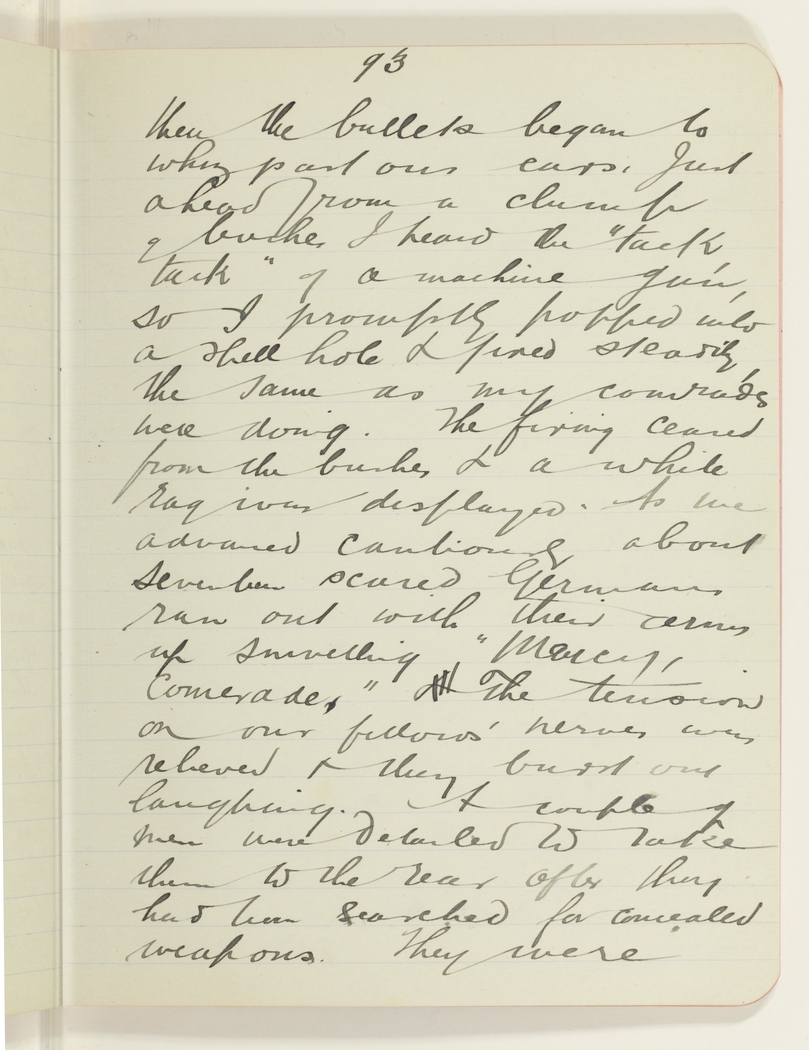 93
then the bullets began to
whiz past our ears. Just
ahead from a clump
of bushes I heard the "tack,
tack" of a machine gun,
so I promptly popped into
a shell hole & fired steadily,
the same as my comrades
were doing. The firing ceased
from the bushes & a white
rag was displayed. As we
advanced cautiously about
seventeen scared Germans
ran out with their arms
up snivelling "Mercy,
Comerade," The tension
on our fellows' nerves was
relieved & they burst out
laughing. A couple of
men were detailed to take
them to the rear after they
had been searched for concealed
weapons. They were